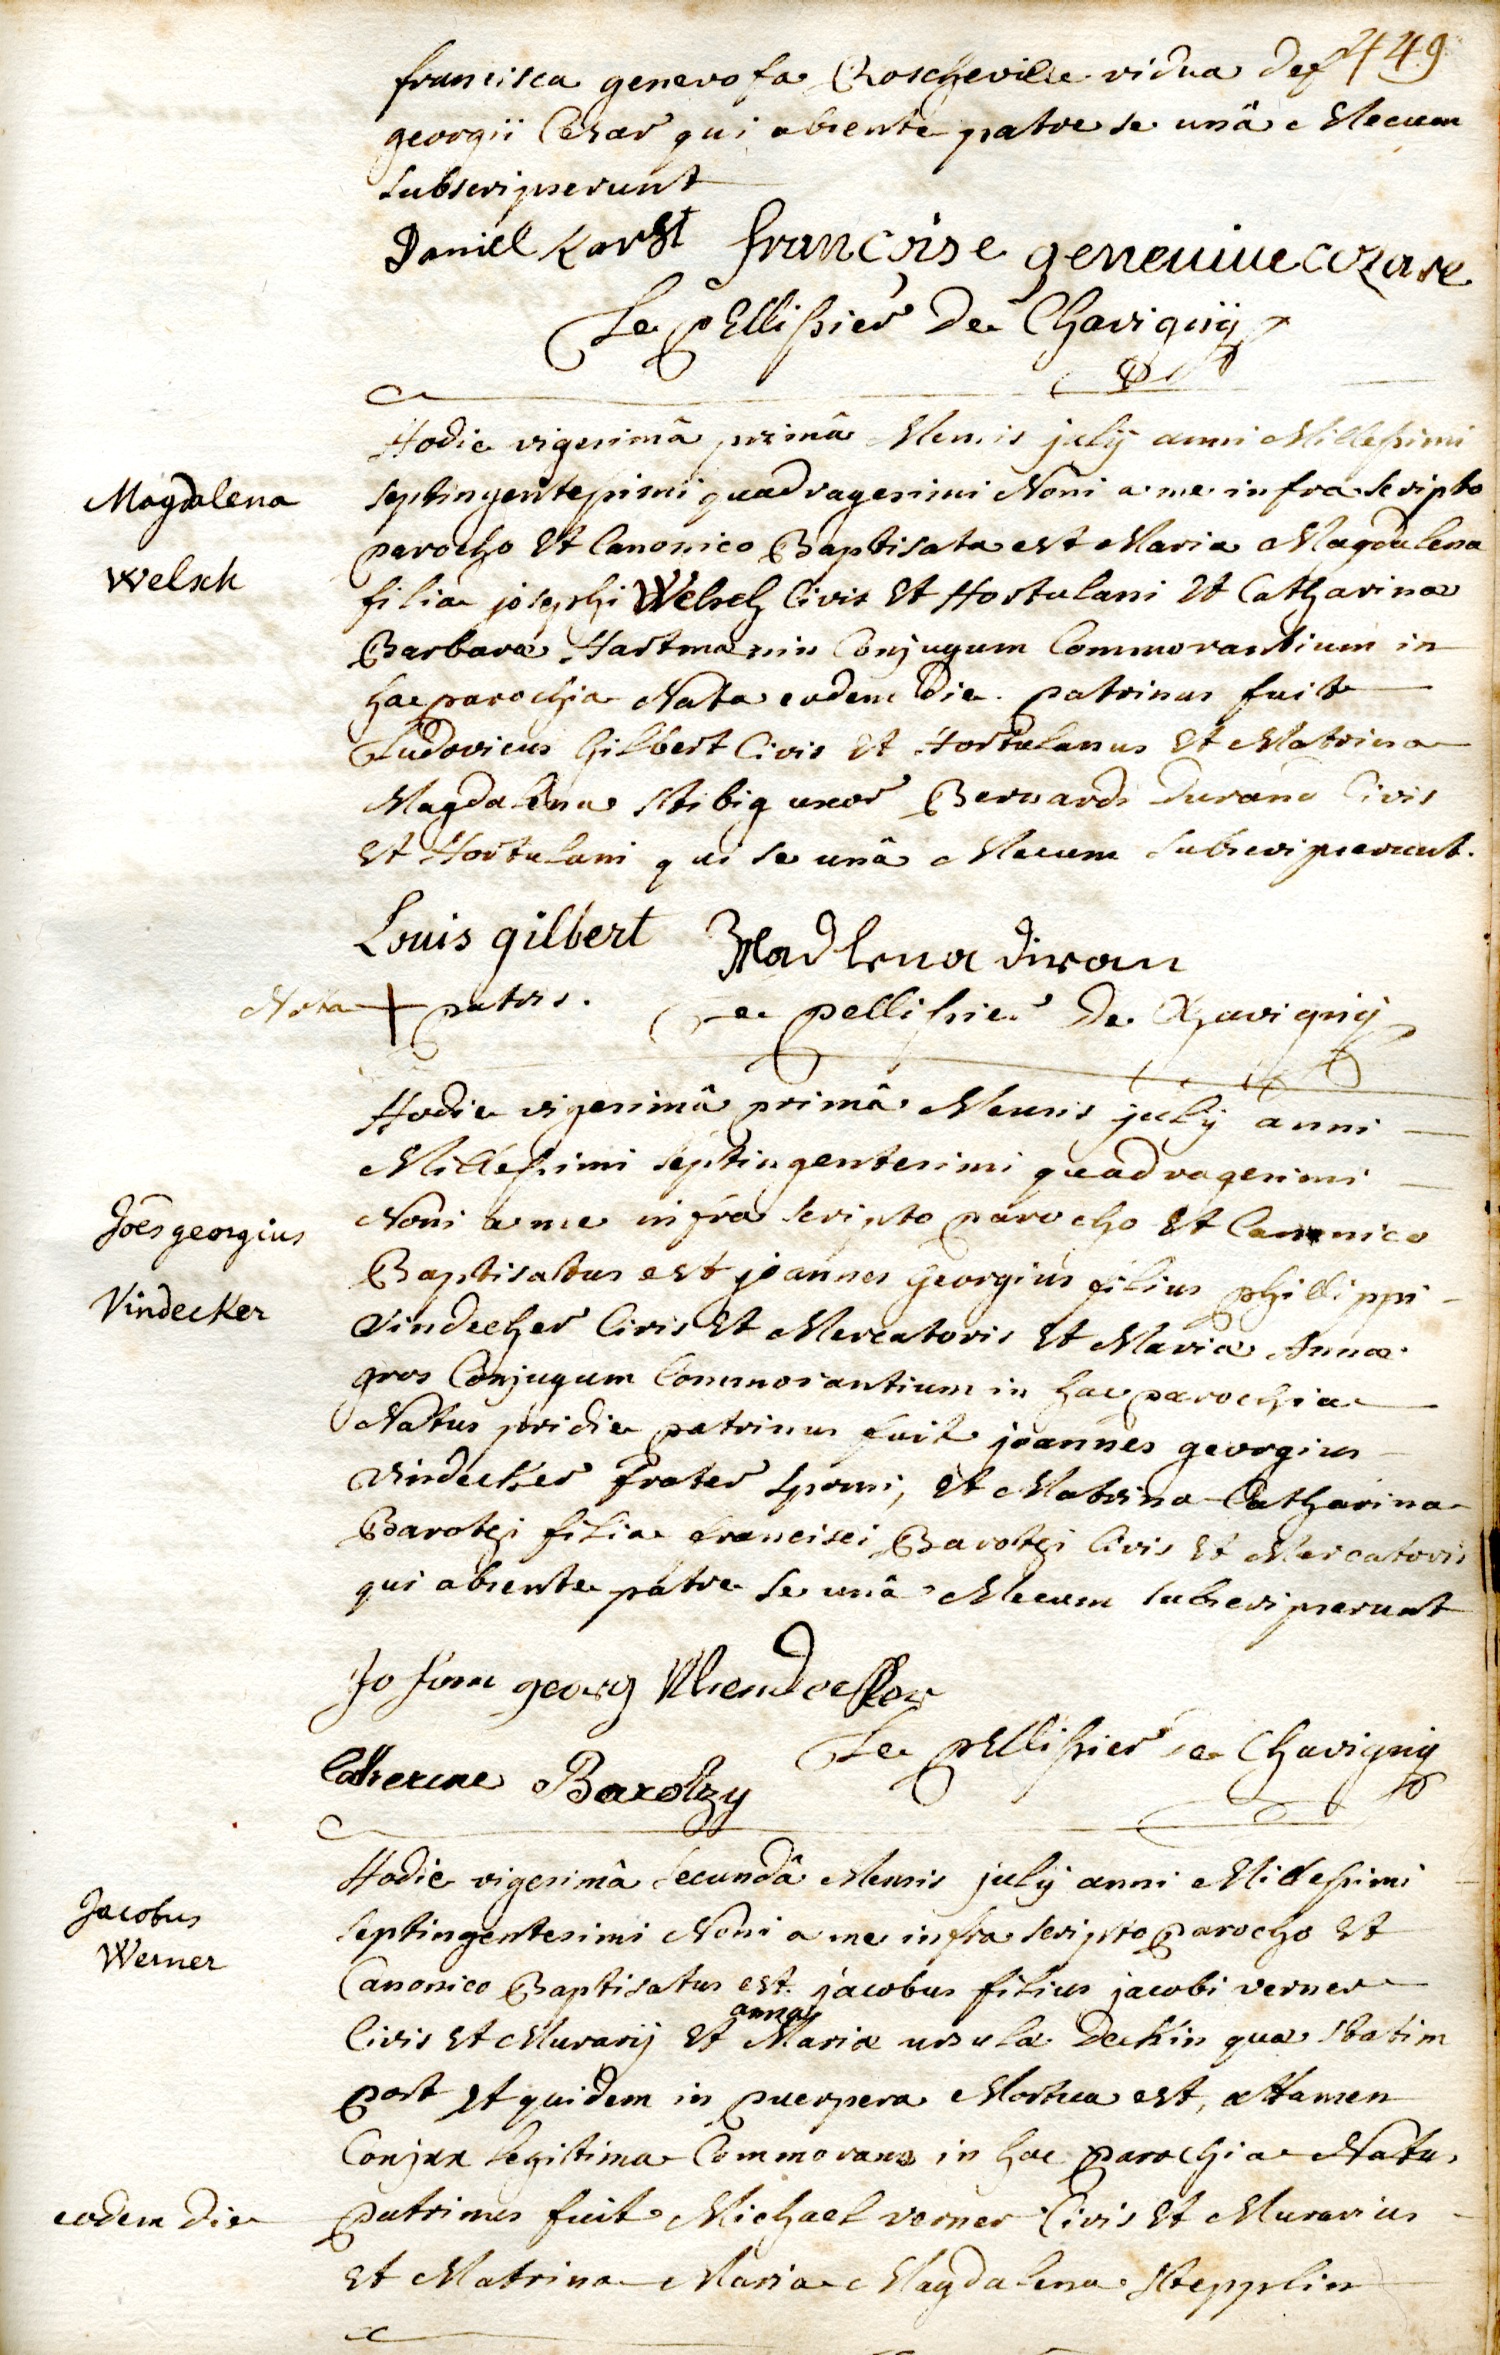 449
francisca genevofa Roscheville vidua def
georgii Cesar qui absente patre se unâ Mecum
subscripserunt
Daniel Karst françoise genevive cezare
Le pellissier De Chavignÿ
Hodie vigesimâ primâ Mensis julÿ anni Millessimi
Magdalena
septingentesimi quadragesimi Noni a me infra scripto
parocho Et Canonico Baptisata est Maria Magdalena
Welsch
filia josephi Welsch Civis Et Hortulani Et Catharinæ
Barbaræ Hartmanin Conjugum Commorantium in
hac parochia Nata eadem Die. patrinus fuit
Ludovicus Gilbert Civis Et Hortulanus Et Matrina
Magdalena Stibig uxor Bernardi Durand Civis
Et Hortulani qui se unâ Mecum subscripserunt.
Louis gilbert Madlena diran
Nota + patris. Le pellissier De Chavignÿ
Hodie vigesimâ primâ Mensis julÿ anni
Millessimi septingentesimi quadragesimi
Joês georgius
Noni a me infra scripto parocho Et Canonico
Baptisatus est joannes Georgius filius philippi
Vindecker
Vindecher Civis Et Mercatoris Et Mariæ Annæ
gros Conjugum Commorantium in hac parochia
Natus pridie patrinus fuit joannes georgius
Vindecker frater spomi, Et Matrina Catharina
Barotzi filia francisci Barotzi Civis Et Mercatoris
qui absente patre se unâ Mecum subscripserunt
georg
Catherine Barotzy Le pellissier De Chavignÿ
Hodie vigesimâ secundâ Mensis julÿ anni Millessimi
Jacobus
septingentesimi Noni a me infra scripto parocho Et
Werner
Canonico Baptisatus est. jacobus filius jacobi verner
annæ
Civis Et Murarÿ Et Mariæ ursulæ Deckin quæ statim
post Et quidem in puerpera Mortua est, attamen
Conjux legitima Commorans in hac parochia Natus
eodem die
patrinus fuit Michael verner Civis Et Murarius
Et Matrina Maria Magdalena Stepplin